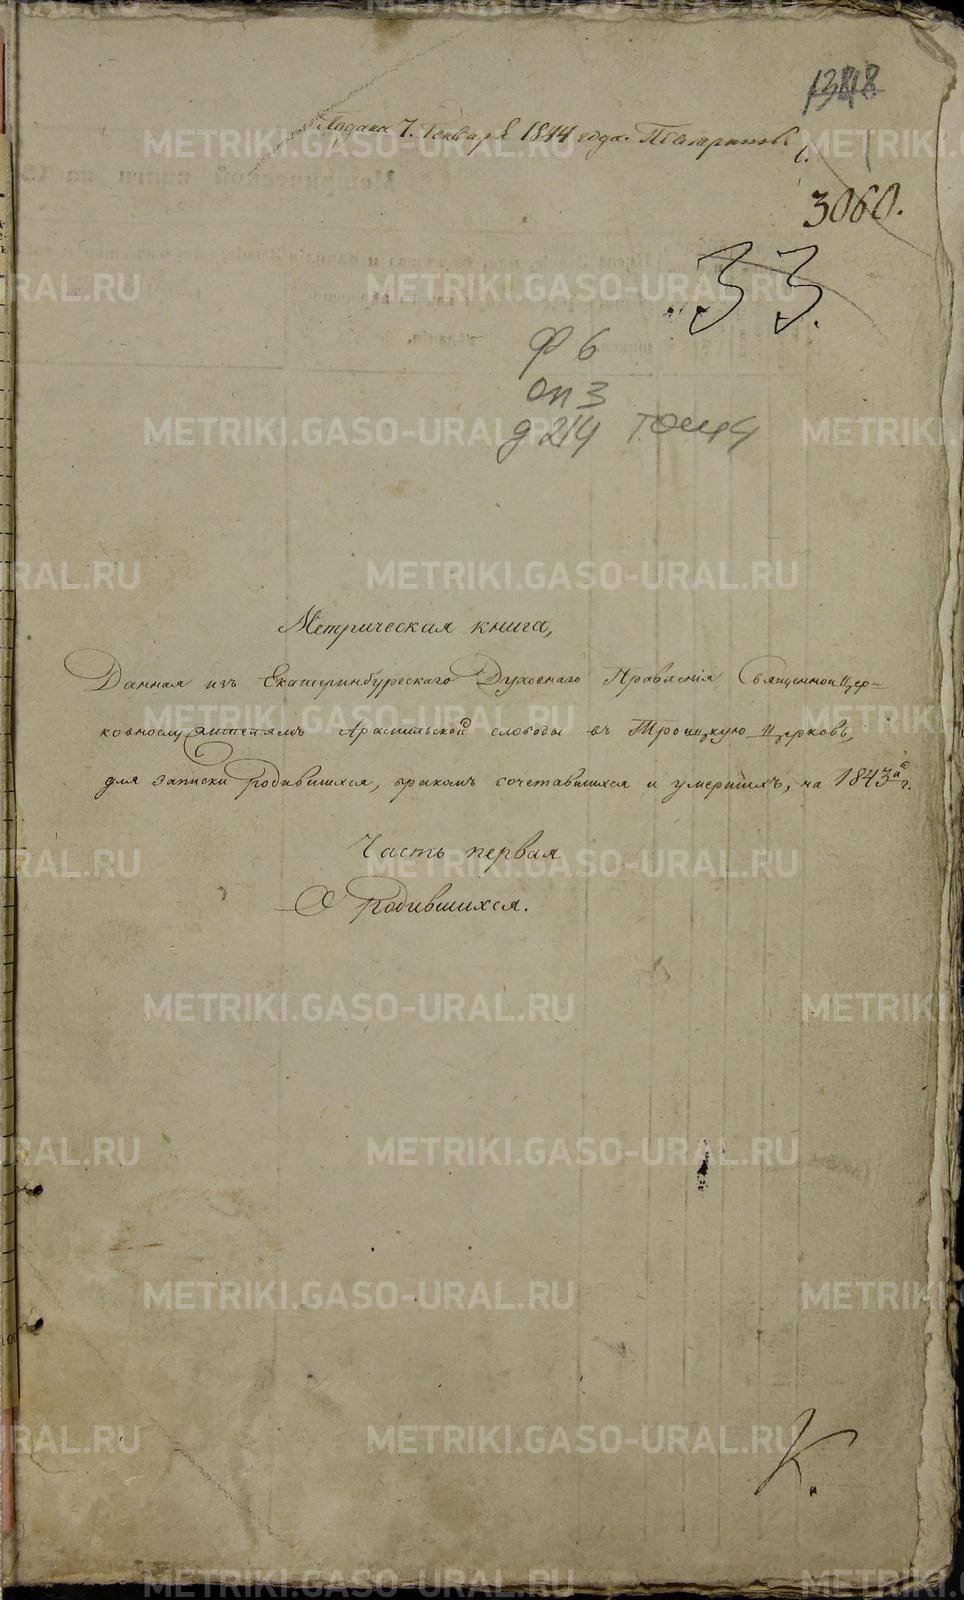 1348
Подана 7. Генваря 1844 года.
3060.
33.
Ф 6
оп 3
д 214
Метрическая книга,
Данная изъ Екатеринбургскаго Духовнаго Правленія Священноцер=
ковнослужителямъ Арамильской слободы въ Троицкую церковь,
для записки родившихся, бракомъ сочетавшихся и умершихъ, на 1843й г.
Часть первая
О родившихся.
К.
METRIKI.GASO-URAL.RU